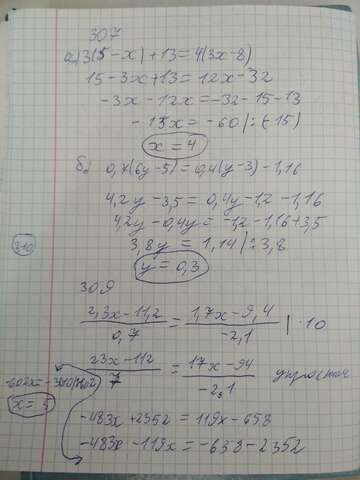 307
а) 3(5-x)+13=4(3x-8)
15-3x+13=12x-32
-3x-12x=-32-15-13
-15x=-60 |:(-15)
x=4
б) 0,7(6y-5)=0,4(y-3)-1,16
4,2y-3,5=0,4y-1,2-1,16
4,2y-0,4y=-1,2-1,16+3,5
310
3,8y=1,14 |:3,8
y=0,3
309
2,3x-11,2 / 0,7 = 1,7x-9,4 / -2,1 | ·10
23x-112 / 7 = 17x-94 / -2,1
x=5
-483x+2352=119x-658
-483x-119x=-658-2352